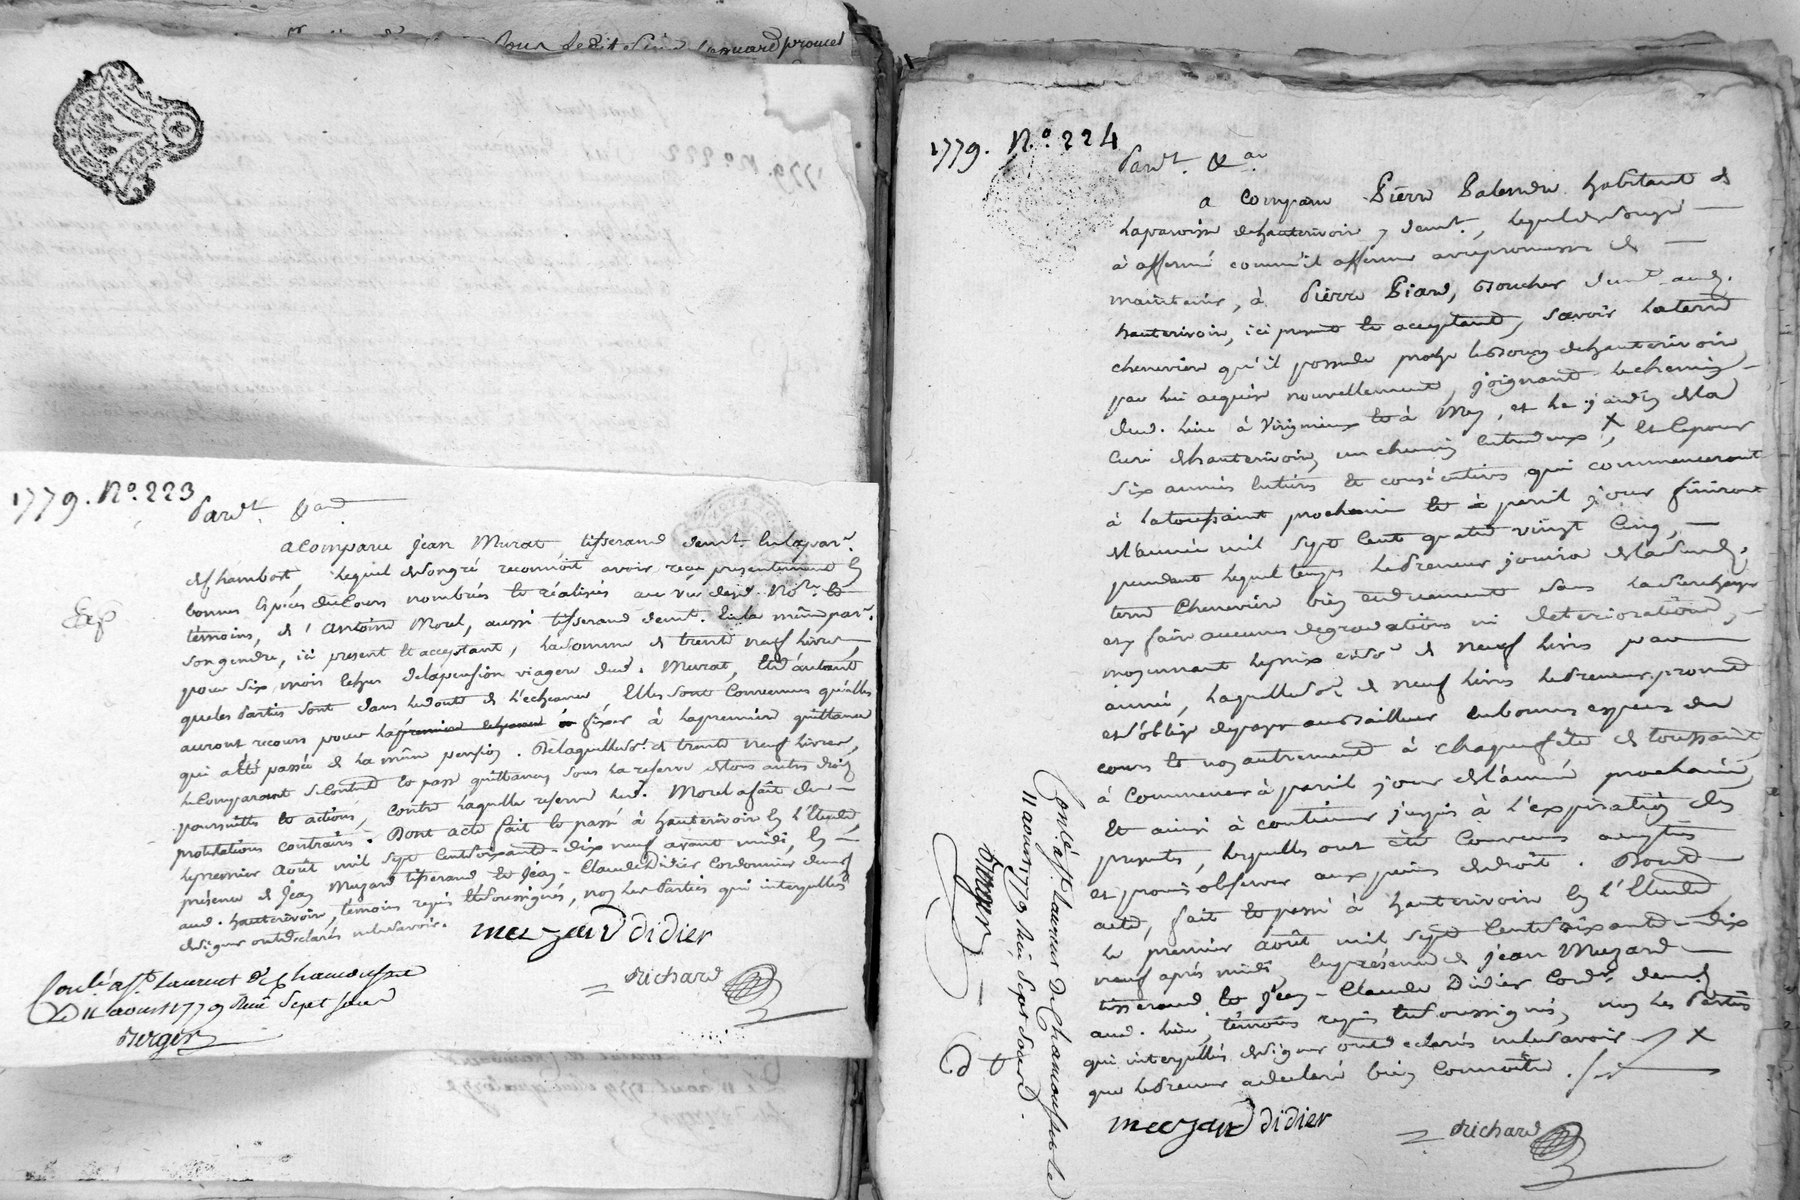 1779. N.º 223
Pardt. &ad
a Comparu jean Murat, tisserand demt. en la par.
de Chambost, lequel de son gré reconnoit avoir reçu presentement en
bonnes Espéces du Cours nombrés et réalisés au vû desd. Nore. et
témoins, de Antoine Morel, aussi tisserand demt. En la même par.
son gendre, ici present et acceptant, la somme de trente neuf livres,
pour six mois de la pension viagere dud. Murat, Et d'autant
que les Parties sont dans le doute de l'echeance Elles sont Convenues qu'elles
auront recours pour la premiere echeance fixer à la premiere quittance
qui a été passée de la même pension. De laquelle so. de trente neuf livres,
le Comparant se Contente et passe quittance, sous la reserve de tous autres droits
poursuittes et actions, Contre laquelle reserve led. Morel a fait des
protestations contraires. Dont acte fait et passé à hauterivoire En l'Etude,
le premier Août mil sept Cent soixante-dix neuf avant midi, En
présence de Jean Muzard tisserand et Jean-Claude Didier Cordonnier demt
aud. hauterivoire, témoins requis et soussignés, non les Parties qui interpellés
de signer ont déclarés ne le savoir.
muzard didier
Richard
Conlé à St. Laurent de Chamousset
Le 11 aoust 1779 Reçû Sept sous
Berger
1779. N.º 224
Pardt. &ad
a Comparu Pierre habitant de
la paroisse de hauterivoire y demt., lequel de son gré
à affermé comm'il afferme avec promesse de
maintenir, à Pierre Piard, Boucher demt. aud.
hauterivoire, ici present et acceptant, savoir la terre
cheneviere qu'il possede proche le bourg de hauterivoire
par lui acquise nouvellement, joignant le chemin
dud. lieu à Virigneux et à Mey, et le jardin de la
Cure de hauterivoire, un chemin entredeux, X Et le pour
six années Entieres et consécutives qui commenceront
à la toussaint prochaine et à pareil jour finiront
de l'année mil sept Cent quatre vingt Cinq,
pendant lequel temps le Preneur jouira de lad.
terre Cheneviere bien et duement sans la surcharger
et y faire aucunes degradations ni deteriorations,
moyennant le prix et so. de neuf livres par
année, laquelle so. de neuf livres le Preneur promet
et s'oblige de payer au Bailleur en bonnes especes du
cours et non autrement à chaque fête de toussaint,
à Commencer à pareil jour de l'année prochaine,
Et ainsi à continuer jusqu'à l'expiration des
presentes, lesquelles ont été Convenues
et promis observer aux peines de droit. Dont
acte, fait et passé à hauterivoire En l'Etude
le premier Août mil sept Cent soixante-dix
neuf après midi, En présence de jean Muzard
tisserand et Jean-Claude Didier Cordr. demt.
aud. lieu, témoins requis et soussignés, non les Parties
qui interpellés de signer ont déclarés ne le savoir X
que le Preneur a declaré bien Connoitre.
muzard didier
Richard
Conlé à St. Laurent De Chamousset le
11 aoust 1779 Reçû Sept Sous.
Berger